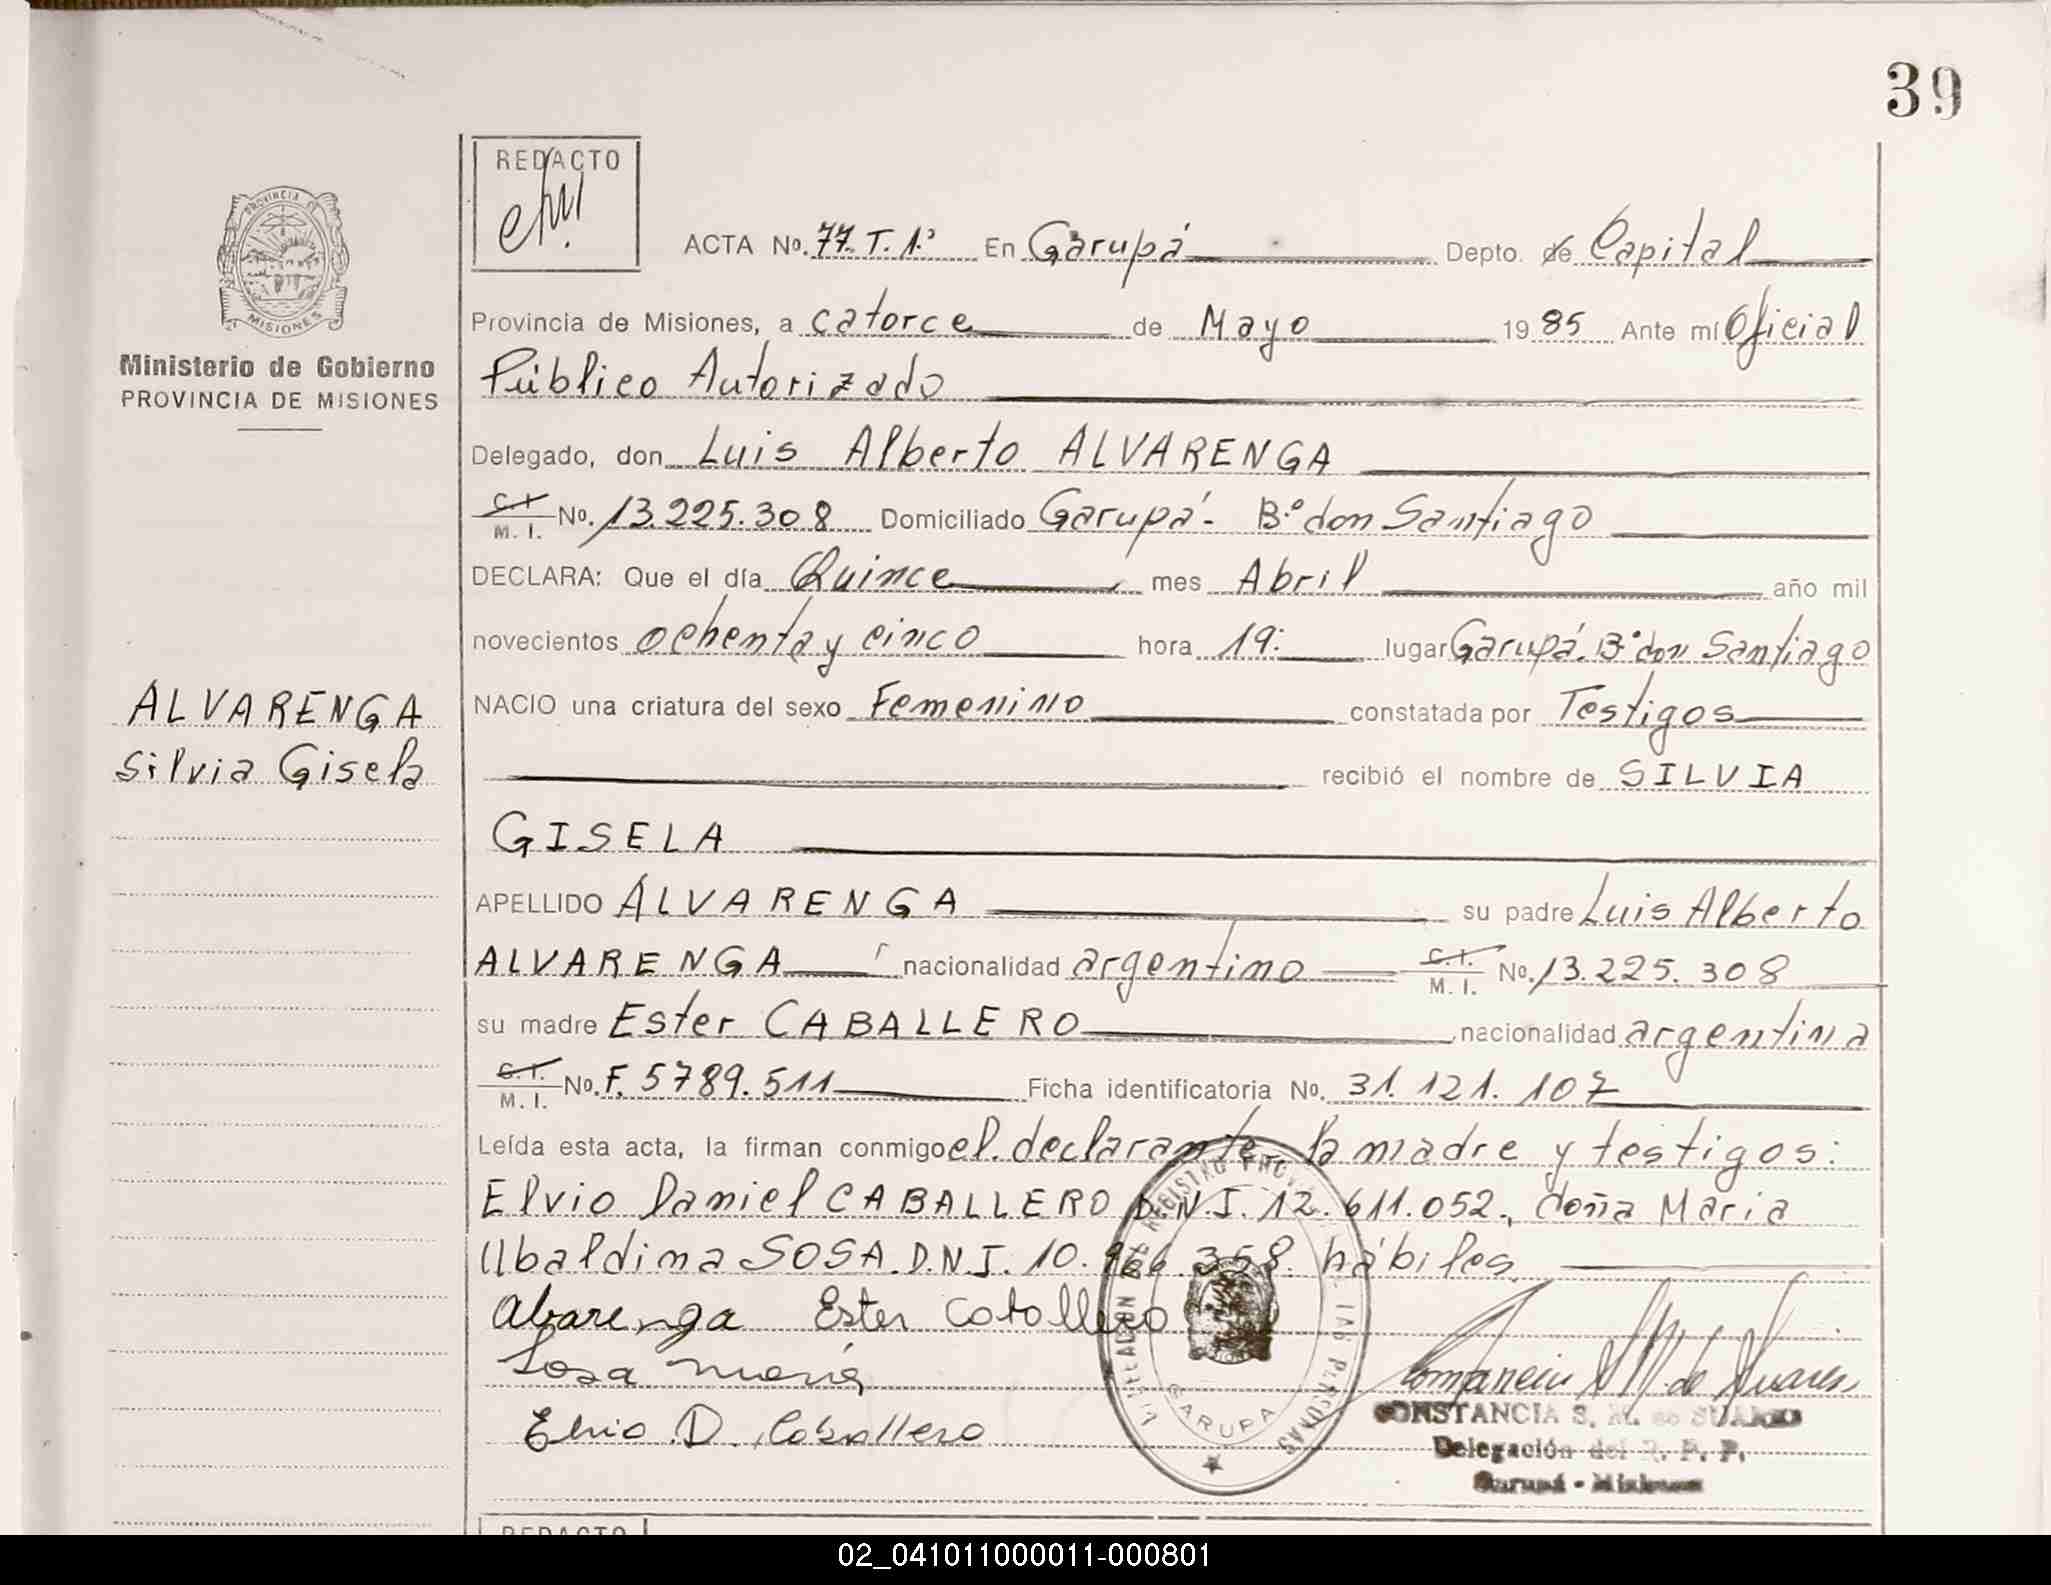 39
REDACTO
PROVINCIA DE
MISIONES
Ministerio de Gobierno
PROVINCIA DE MISIONES
ALVARENGA
Silvia Gisela
ACTA No. 77. T. 1.º En Garupá Depto. de Capital
Provincia de Misiones, a catorce de Mayo 1985 Ante mí Oficial
Público Autorizado
Delegado, don Luis Alberto ALVARENGA
C.I. M. I. No. 13.225.308 Domiciliado Garupá- B.º don Santiago
DECLARA: Que el día Quince mes Abril año mil
novecientos ochenta y cinco hora 19: lugar Garupá. B.º don Santiago
NACIO una criatura del sexo Femenino constatada por Testigos
recibió el nombre de SILVIA
GISELA
APELLIDO ALVARENGA su padre Luis Alberto
ALVARENGA nacionalidad argentino C.I. M. I. No. 13.225.308
su madre Ester CABALLERO nacionalidad argentina
C.I. M. I. No. F. 5789.511 Ficha identificatoria No. 31.121.107
Leída esta acta, la firman conmigo el declarante, la madre y testigos:
Elvio Daniel CABALLERO D.N.I. 12.611.052., doña Maria
Ubaldina SOSA. D.N.I. 10.966.358. hábiles
Alvarenga Ester Caballero
Sosa María
Elvio D. Caballero
GARUPA
CONSTANCIA S. M. de SUAREZ
Delegación del R. P. P.
Garupá - Misiones
REDACTO
02_041011000011-000801